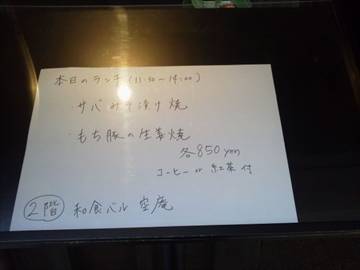 本日のランチ (11:30~14:00)
・サバみそ漬け焼
・もち豚の生姜焼
各850yen
コーヒー or 紅茶 付
2階 和食バル 空庵